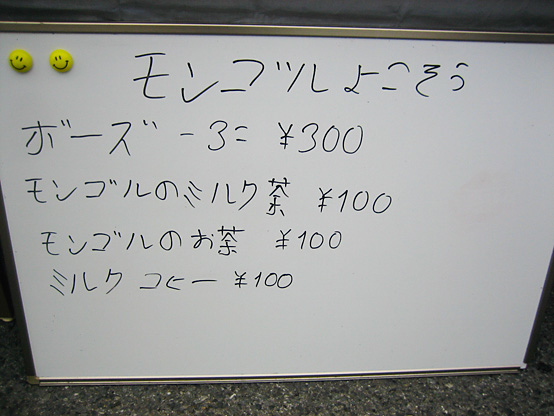 モンゴルよこそう
ボーズ -3= ¥300
モンゴルのミルク茶 ¥100
モンゴルのお茶 ¥100
ミルク コヒー ¥100